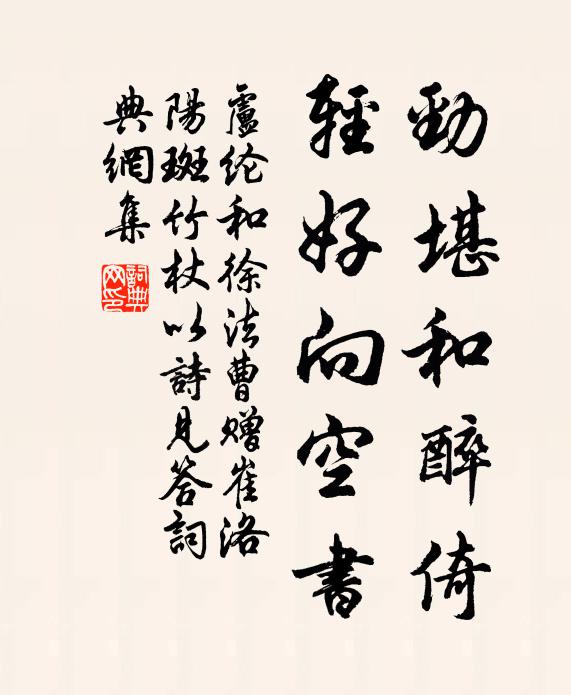 勁堪和醉倚
輕好向空書
盧纶和徐法曹赠崔洛
陽斑竹杖以詩見答詞
典網集
詞典網印